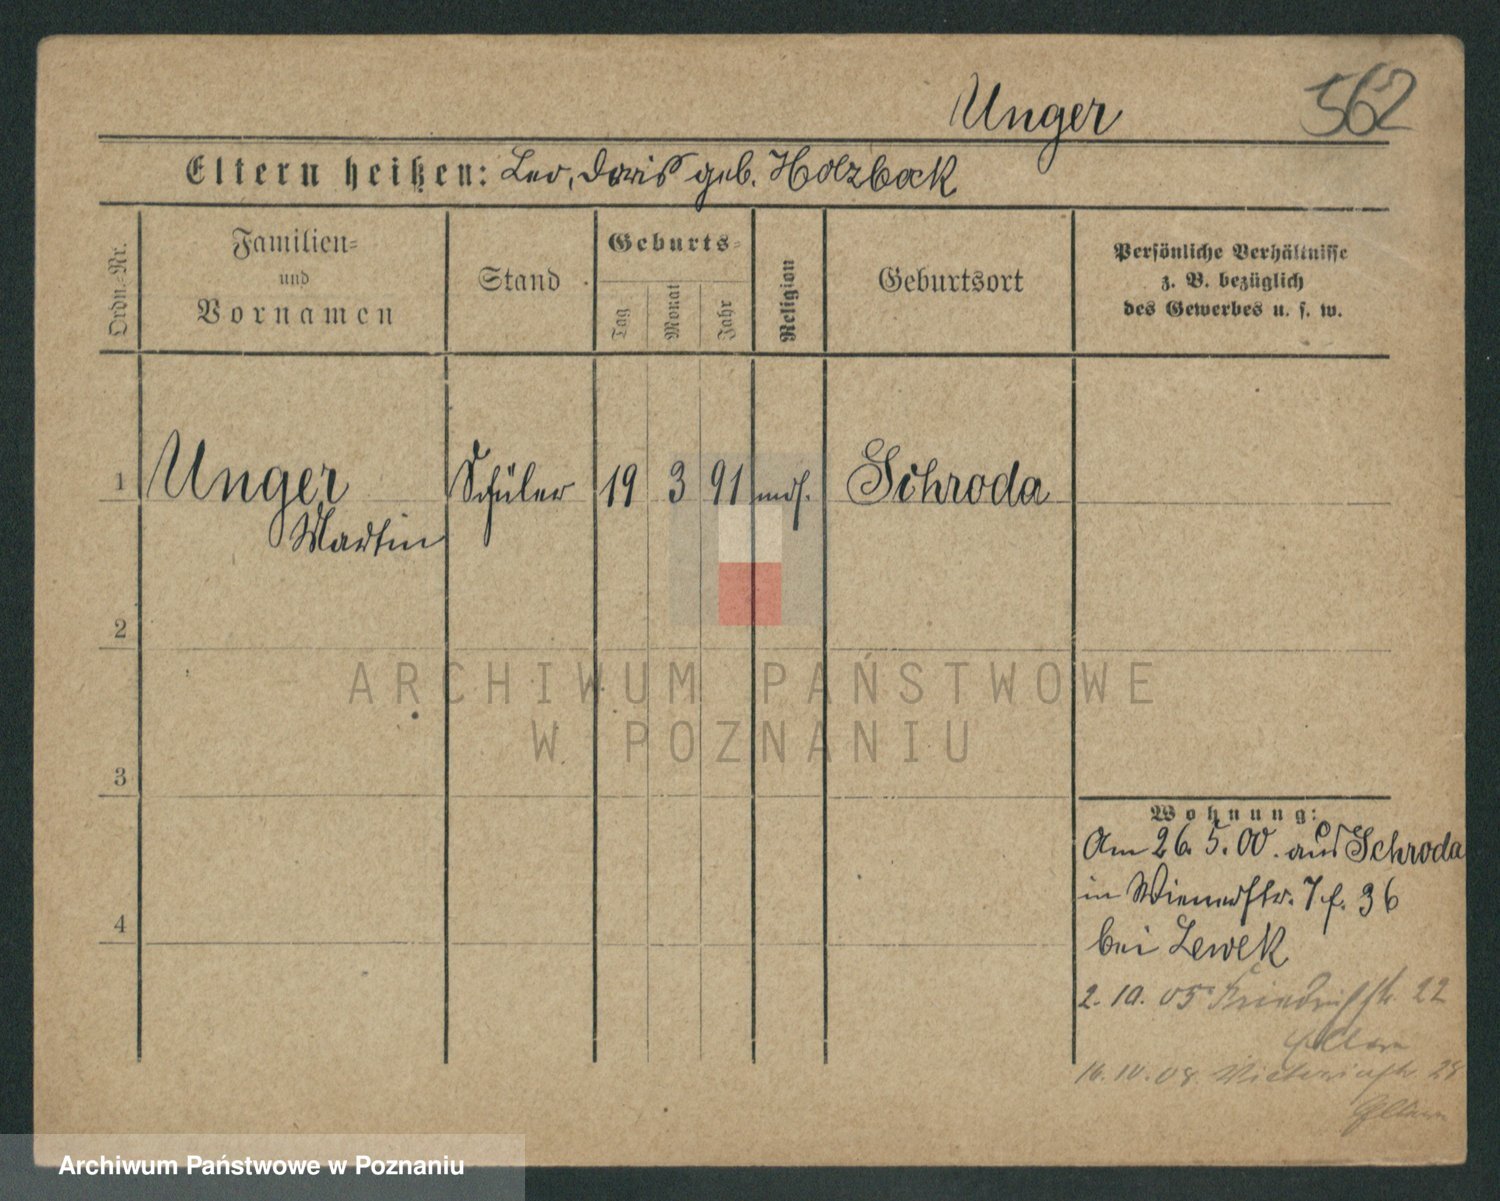 Unger
562
Eltern heißen: Leo, Doris geb. Holzbock
Ordn.-Nr.
Familien-
und
Vornamen
Stand
Geburts-
Tag
Monat
Jahr
Religion
Geburtsort
Persönliche Verhältnisse
z. B. bezüglich
des Gewerbes u. s. w.
1 Unger Schüler 19 3 91 mos. Schroda
Martin
2
ARCHIWUM PAŃSTWOWE
W POZNANIU
3
Wohnung:
Am 26. 5. 00. aus Schroda
in Wienerstr. 7 f. 36
4
bei Lewek
2. 10. 05 Friedrichstr. 22
Eltern
16. 10. 08. Victoriastr. 28
Eltern
Archiwum Państwowe w Poznaniu